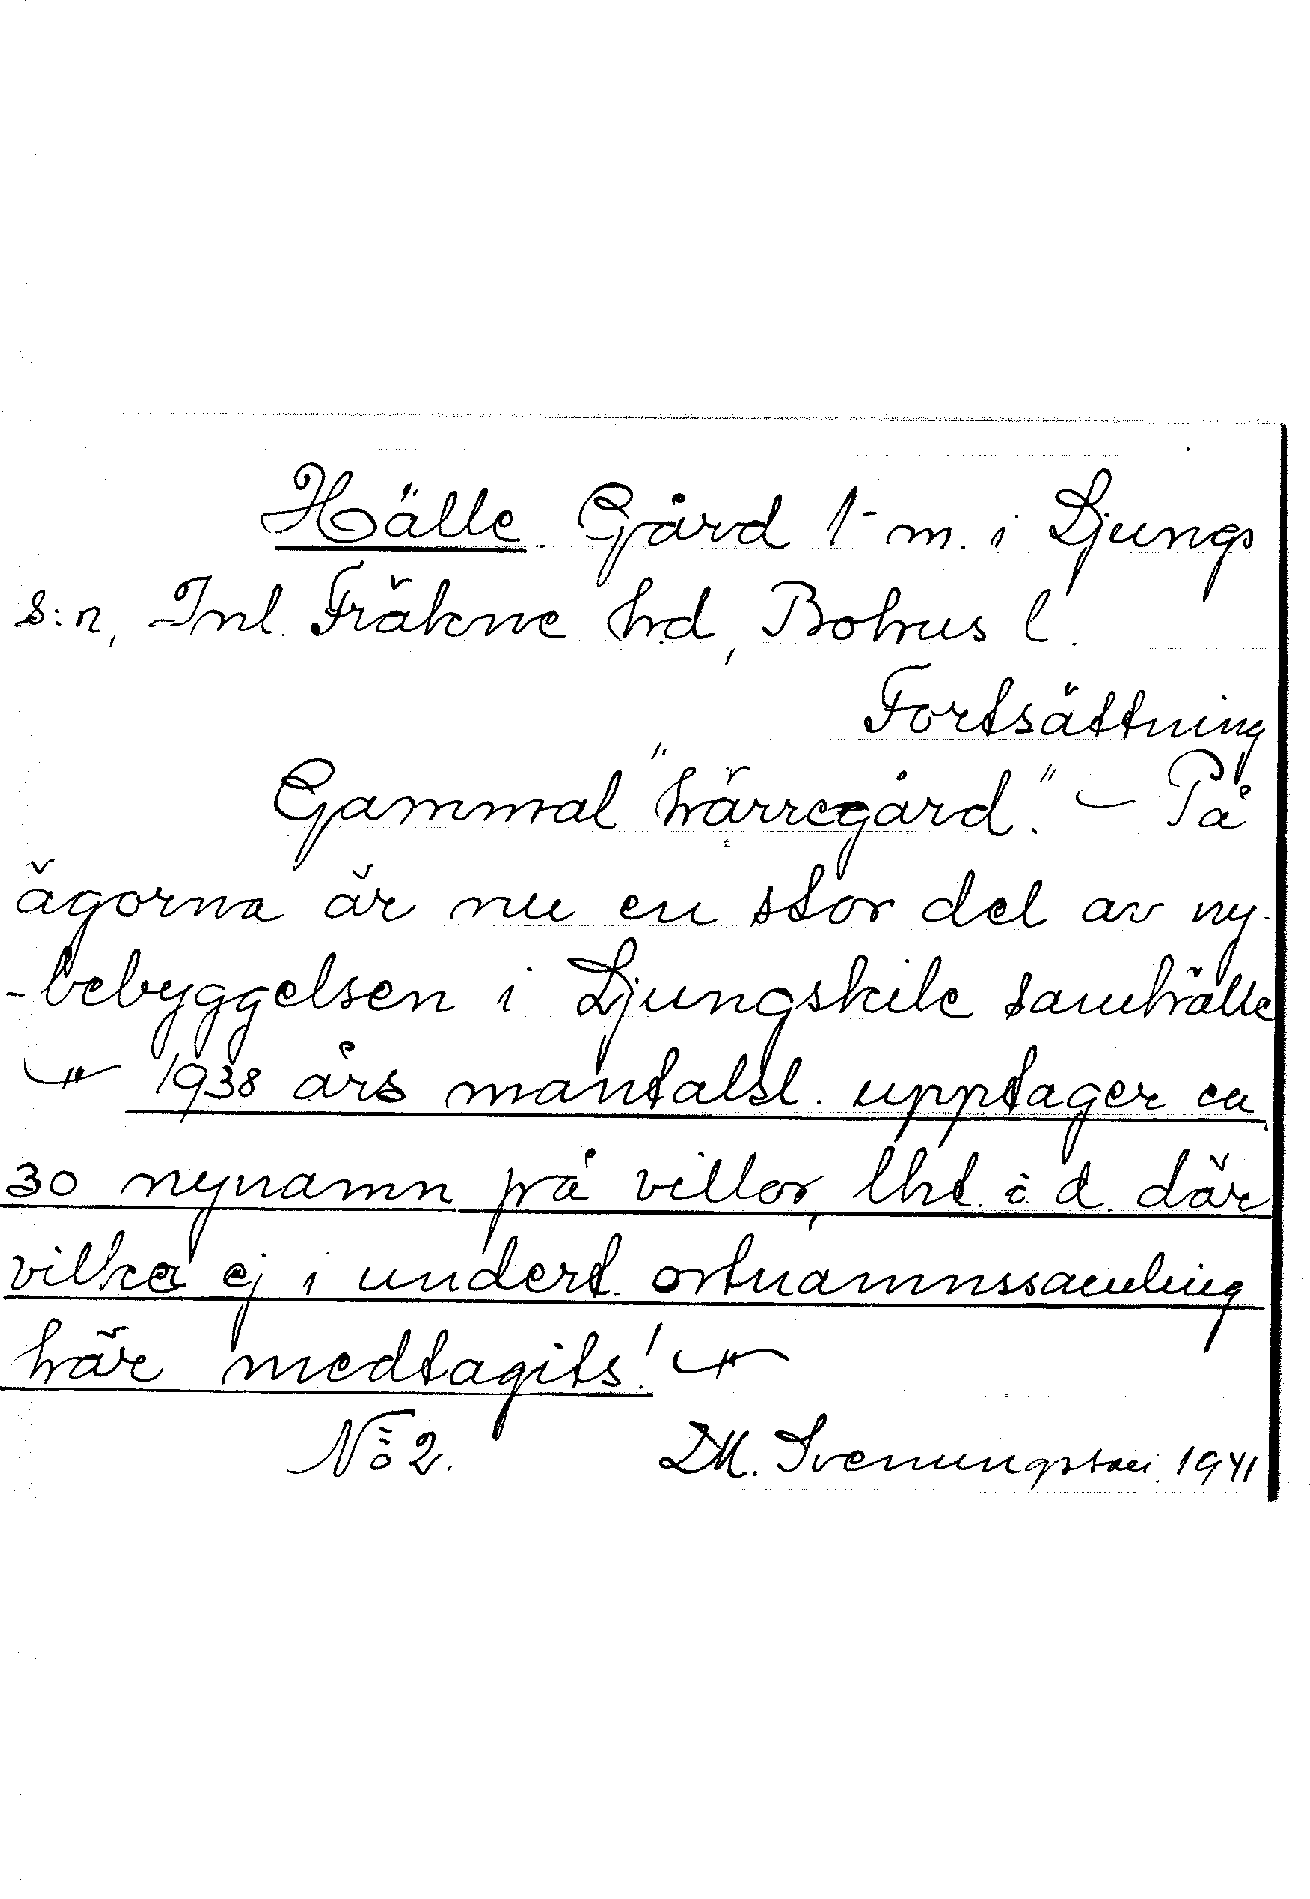 Hälle Gård 1- m. i Ljungs
s:n, Inl. Fräkne hd, Bohus l.
Fortsättning
Gammal "härregård". — På
ägorna är nu en stor del av ny-
-bebyggelsen i Ljungskile samhälle
1938 års mantalsl. upptager ca
30 nynamn på villor, lht. o. d. där
vilka ej i undert. ortnamnssamling
här medtagits!
No 2. D.M. Svenungsson 1941